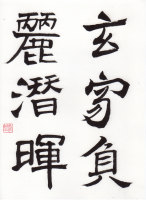 玄負
麗潛暉